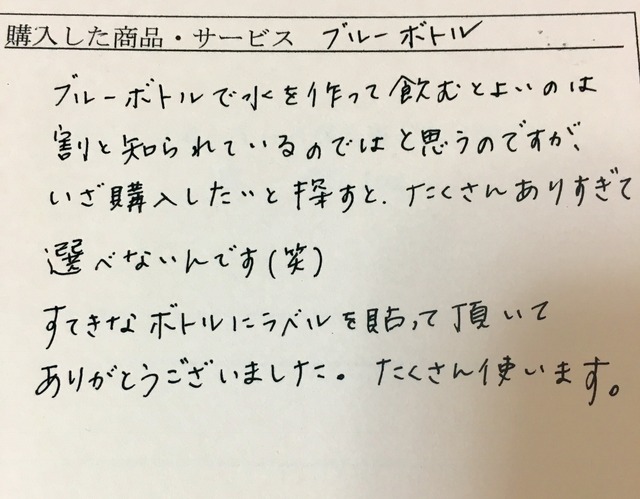 購入した商品・サービス ブルーボトル
ブルーボトルで水を作って飲むとよいのは
割と知られているのではと思うのですが、
いざ購入したいと探すと、たくさんありすぎて
選べないんです(笑)
すてきなボトルにラベルを貼って頂いて
ありがとうございました。たくさん使います。